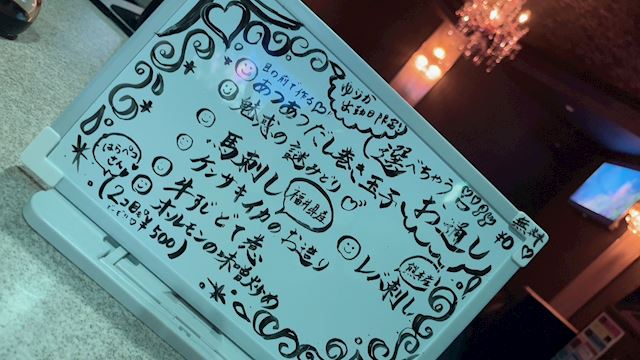 ゆうか
お勤日限定
選べちゃうお通し
無料
¥0
目の前で作る♡
あつあつだし巻き玉子
魅惑の謎みどり♡
馬刺し
熊本産
レバ刺し
福井県産
ケンサキイカのお造り
牛すじどて煮
ホルモンの味噌炒め
はらぺこさん
(2コ目〜¥500)